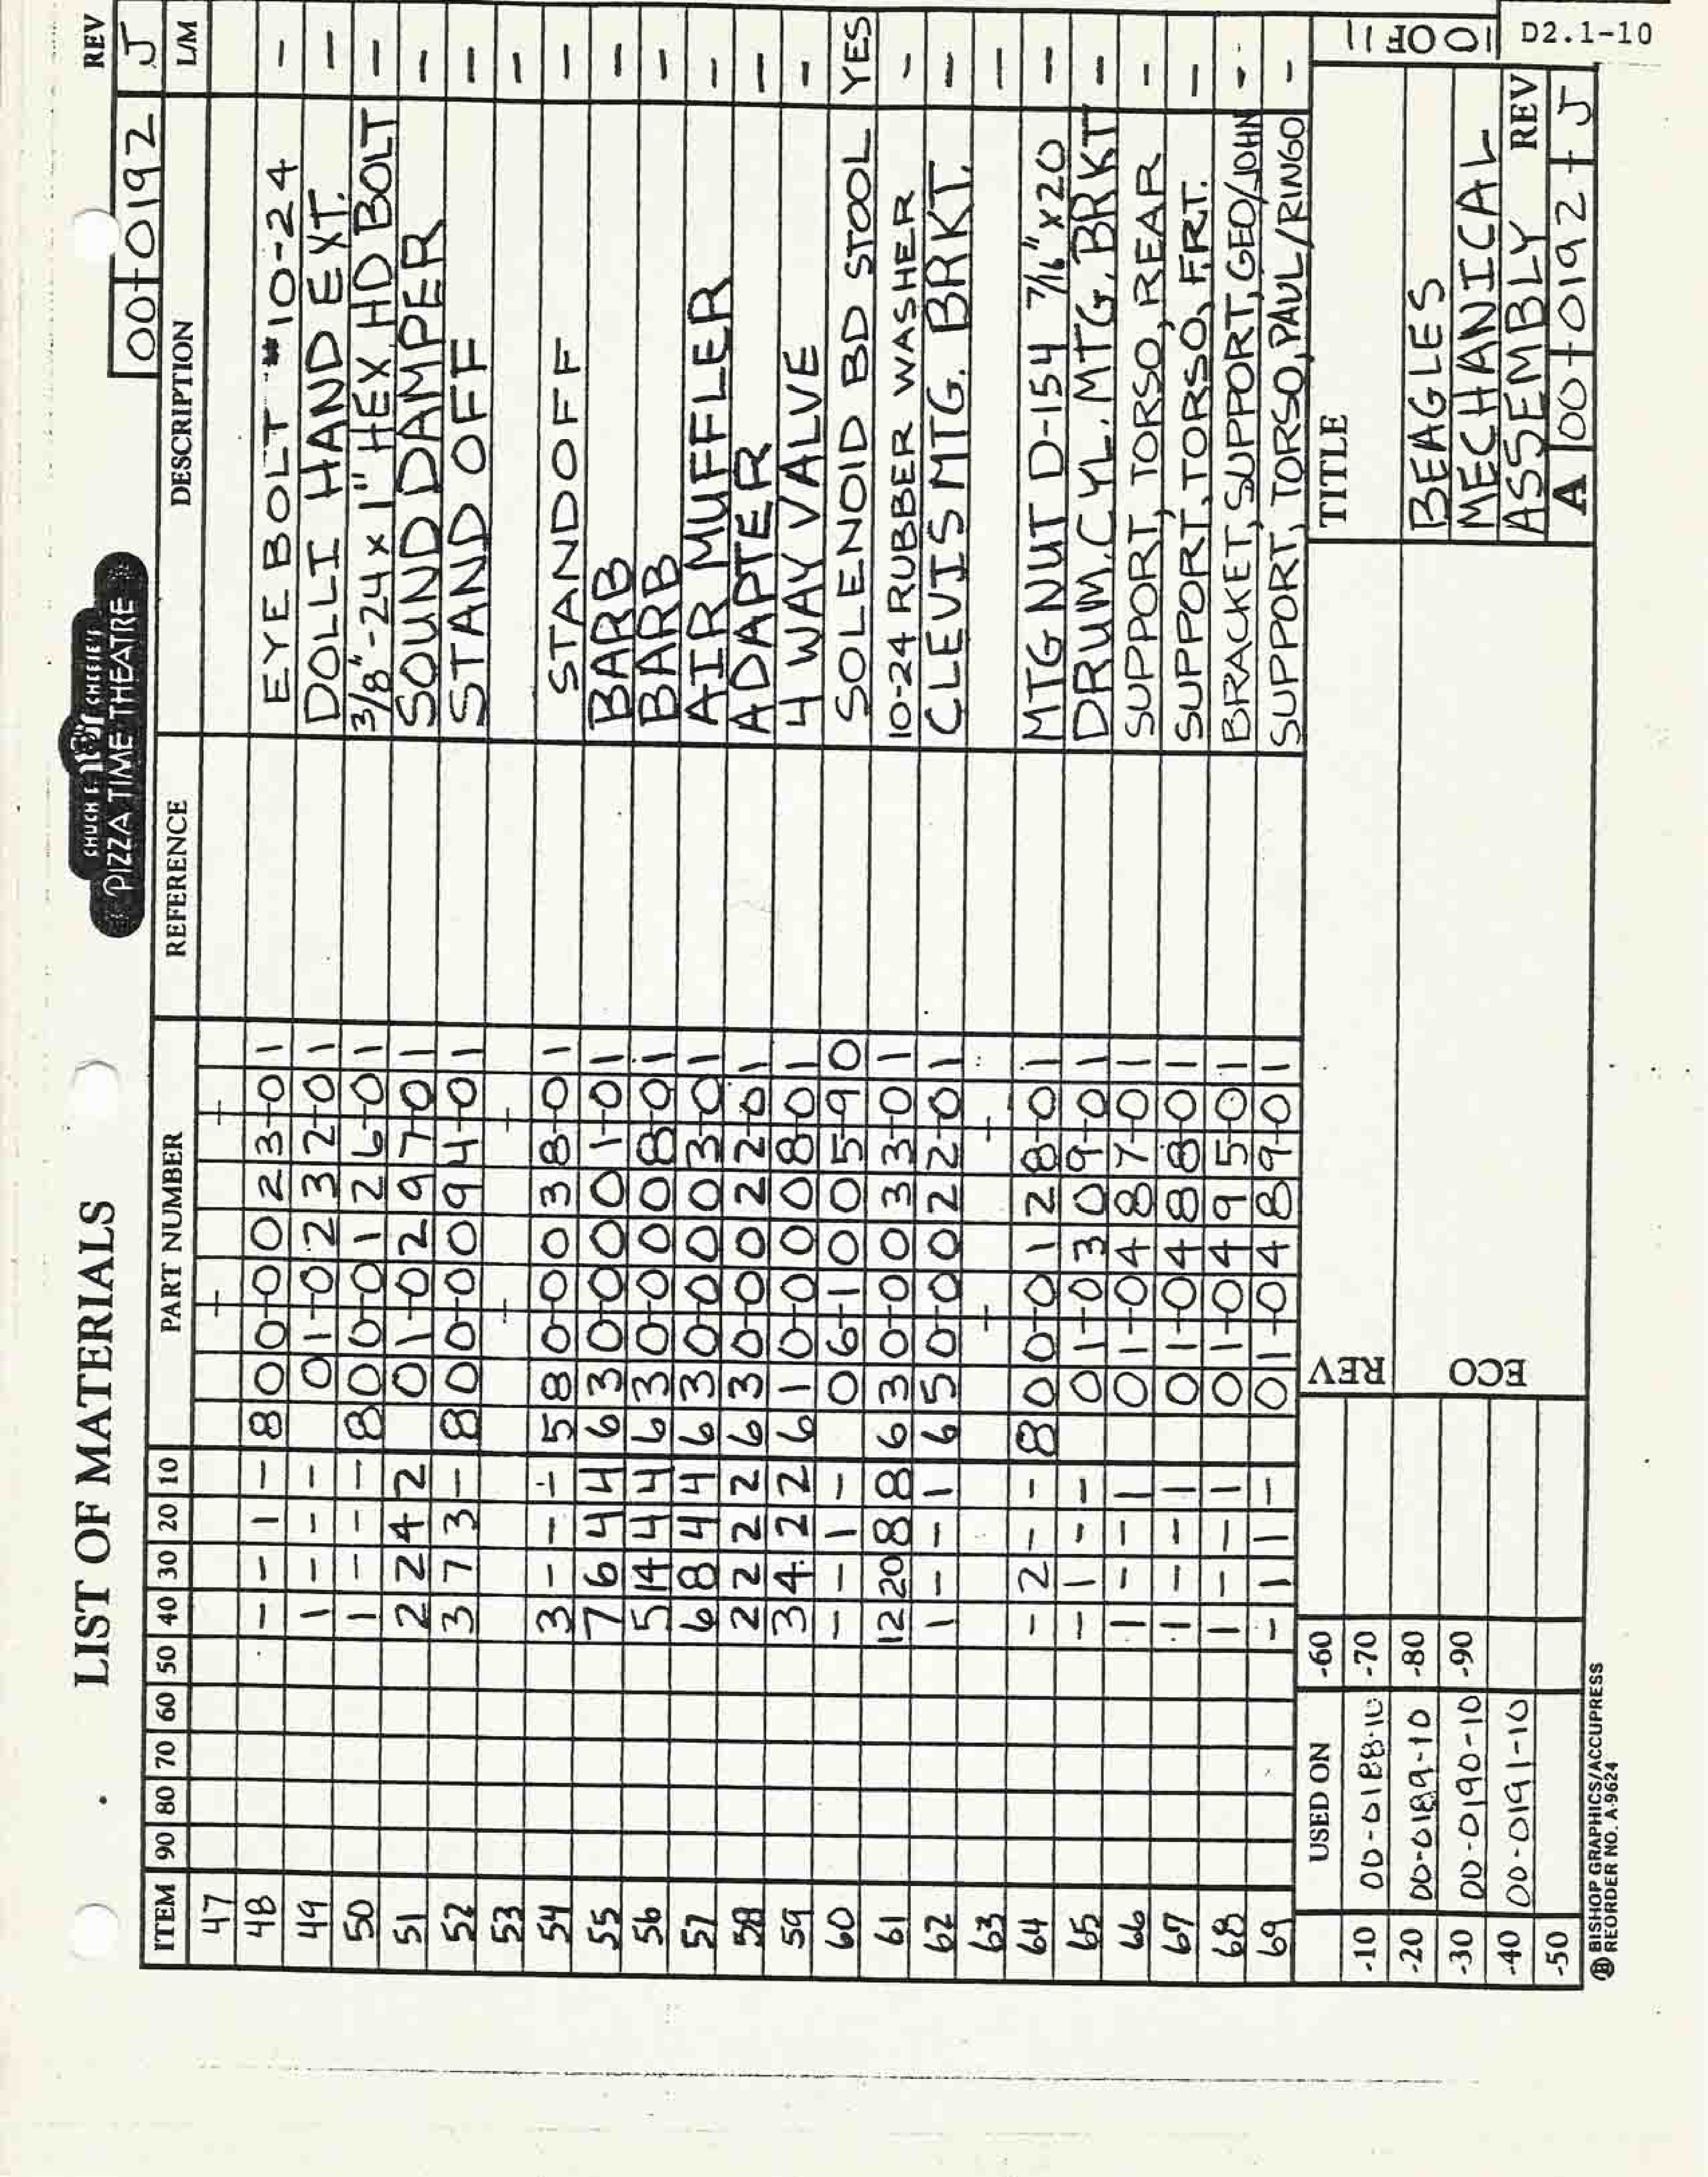 LIST OF MATERIALS
CHUCK E. CHEESE'S
PIZZA TIME THEATRE
REV
00-0192 J
ITEM 90 80 70 60 50 40 30 20 10 PART NUMBER REFERENCE DESCRIPTION L/M
47 - -
48 - - 1 - 800-0023-01 EYE BOLT #10-24 -
49 1 - - - 01-0232-01 DOLLI HAND EXT. -
50 1 - - - 800-0126-01 3/8"-24 x 1" HEX HD BOLT -
51 2 2 4 2 01-0297-01 SOUND DAMPER -
52 3 7 3 - 800-0094-01 STAND OFF -
53 - - -
54 3 - - - 580-0038-01 STANDOFF -
55 7 6 4 4 630-0001-01 BARB -
56 5 14 4 4 630-0008-01 BARB -
57 6 8 4 4 630-0003-01 AIR MUFFLER -
58 2 2 2 2 630-0022-01 ADAPTER -
59 3 4 2 2 610-0008-01 4 WAY VALVE -
60 - - 1 - 06-1005-90 SOLENOID BD STOOL YES
61 12 20 8 8 630-0033-01 10-24 RUBBER WASHER -
62 1 - - 1 650-0022-01 CLEVIS MTG. BRKT. -
63 - - -
64 - 2 - - 800-0128-01 MTG NUT D-154 7/16" x 20 -
65 - 1 - - 01-0309-01 DRUM. CYL. MTG. BRKT -
66 1 - - 1 01-0487-01 SUPPORT, TORSO, REAR -
67 1 - - 1 01-0488-01 SUPPORT, TORSO, FRT. -
68 1 - - 1 01-0495-01 BRACKET, SUPPORT, GEO/JOHN -
69 - 1 1 - 01-0489-01 SUPPORT, TORSO, PAUL/RINGO -
USED ON -60
-10 00-0188-10 -70
-20 00-0189-10 -80
-30 00-0190-10 -90
-40 00-0191-10
-50
REV
ECO
TITLE
10 OF 11
BEAGLES
MECHANICAL
ASSEMBLY REV
A 00-0192- J
D2.1-10
Ⓑ BISHOP GRAPHICS/ACCUPRESS
REORDER NO. A-9624